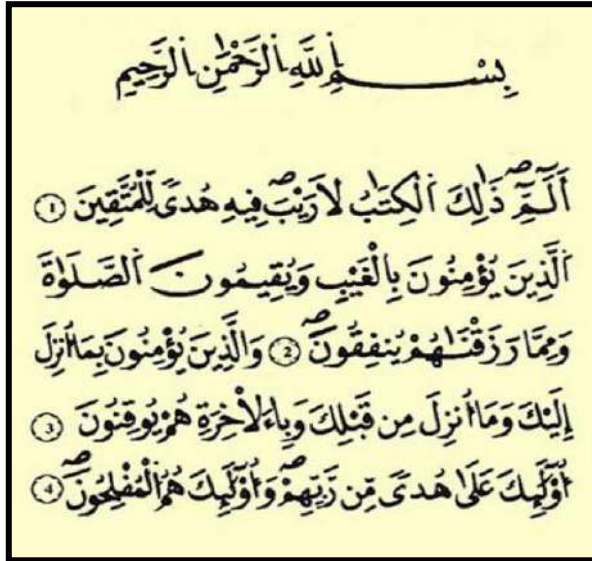 بِسْمِ اِ۬للَّهِ اِ۬لرَّحْمَٰنِ اِ۬لرَّحِيمِ
أَلَٓمِّٓۖ ذَٰلِكَ اَ۬لْكِتَٰبُ لَا رَيْبَۖ فِيهِ هُدىً لِّلْمُتَّقِينَ ①
اَ۬لذِينَ يُؤْمِنُونَ بِالْغَيْبِ وَيُقِيمُونَ اَ۬لصَّلَوٰةَ
وَمِمَّا رَزَقْنَٰهُمْ يُنفِقُونَۖ ② وَالذِينَ يُؤْمِنُونَ بِمَا أُنزِلَ
إِلَيْكَ وَمَا أُنزِلَ مِن قَبْلِكَ وَبِالَاخِرَةِ هُمْ يُوقِنُونَ ③
أُوْلَٰٓئِكَ عَلَىٰ هُدىً مِّن رَّبِّهِمْۖ وَأُوْلَٰٓئِكَ هُمُ اُ۬لْمُفْلِحُونَۖ ④